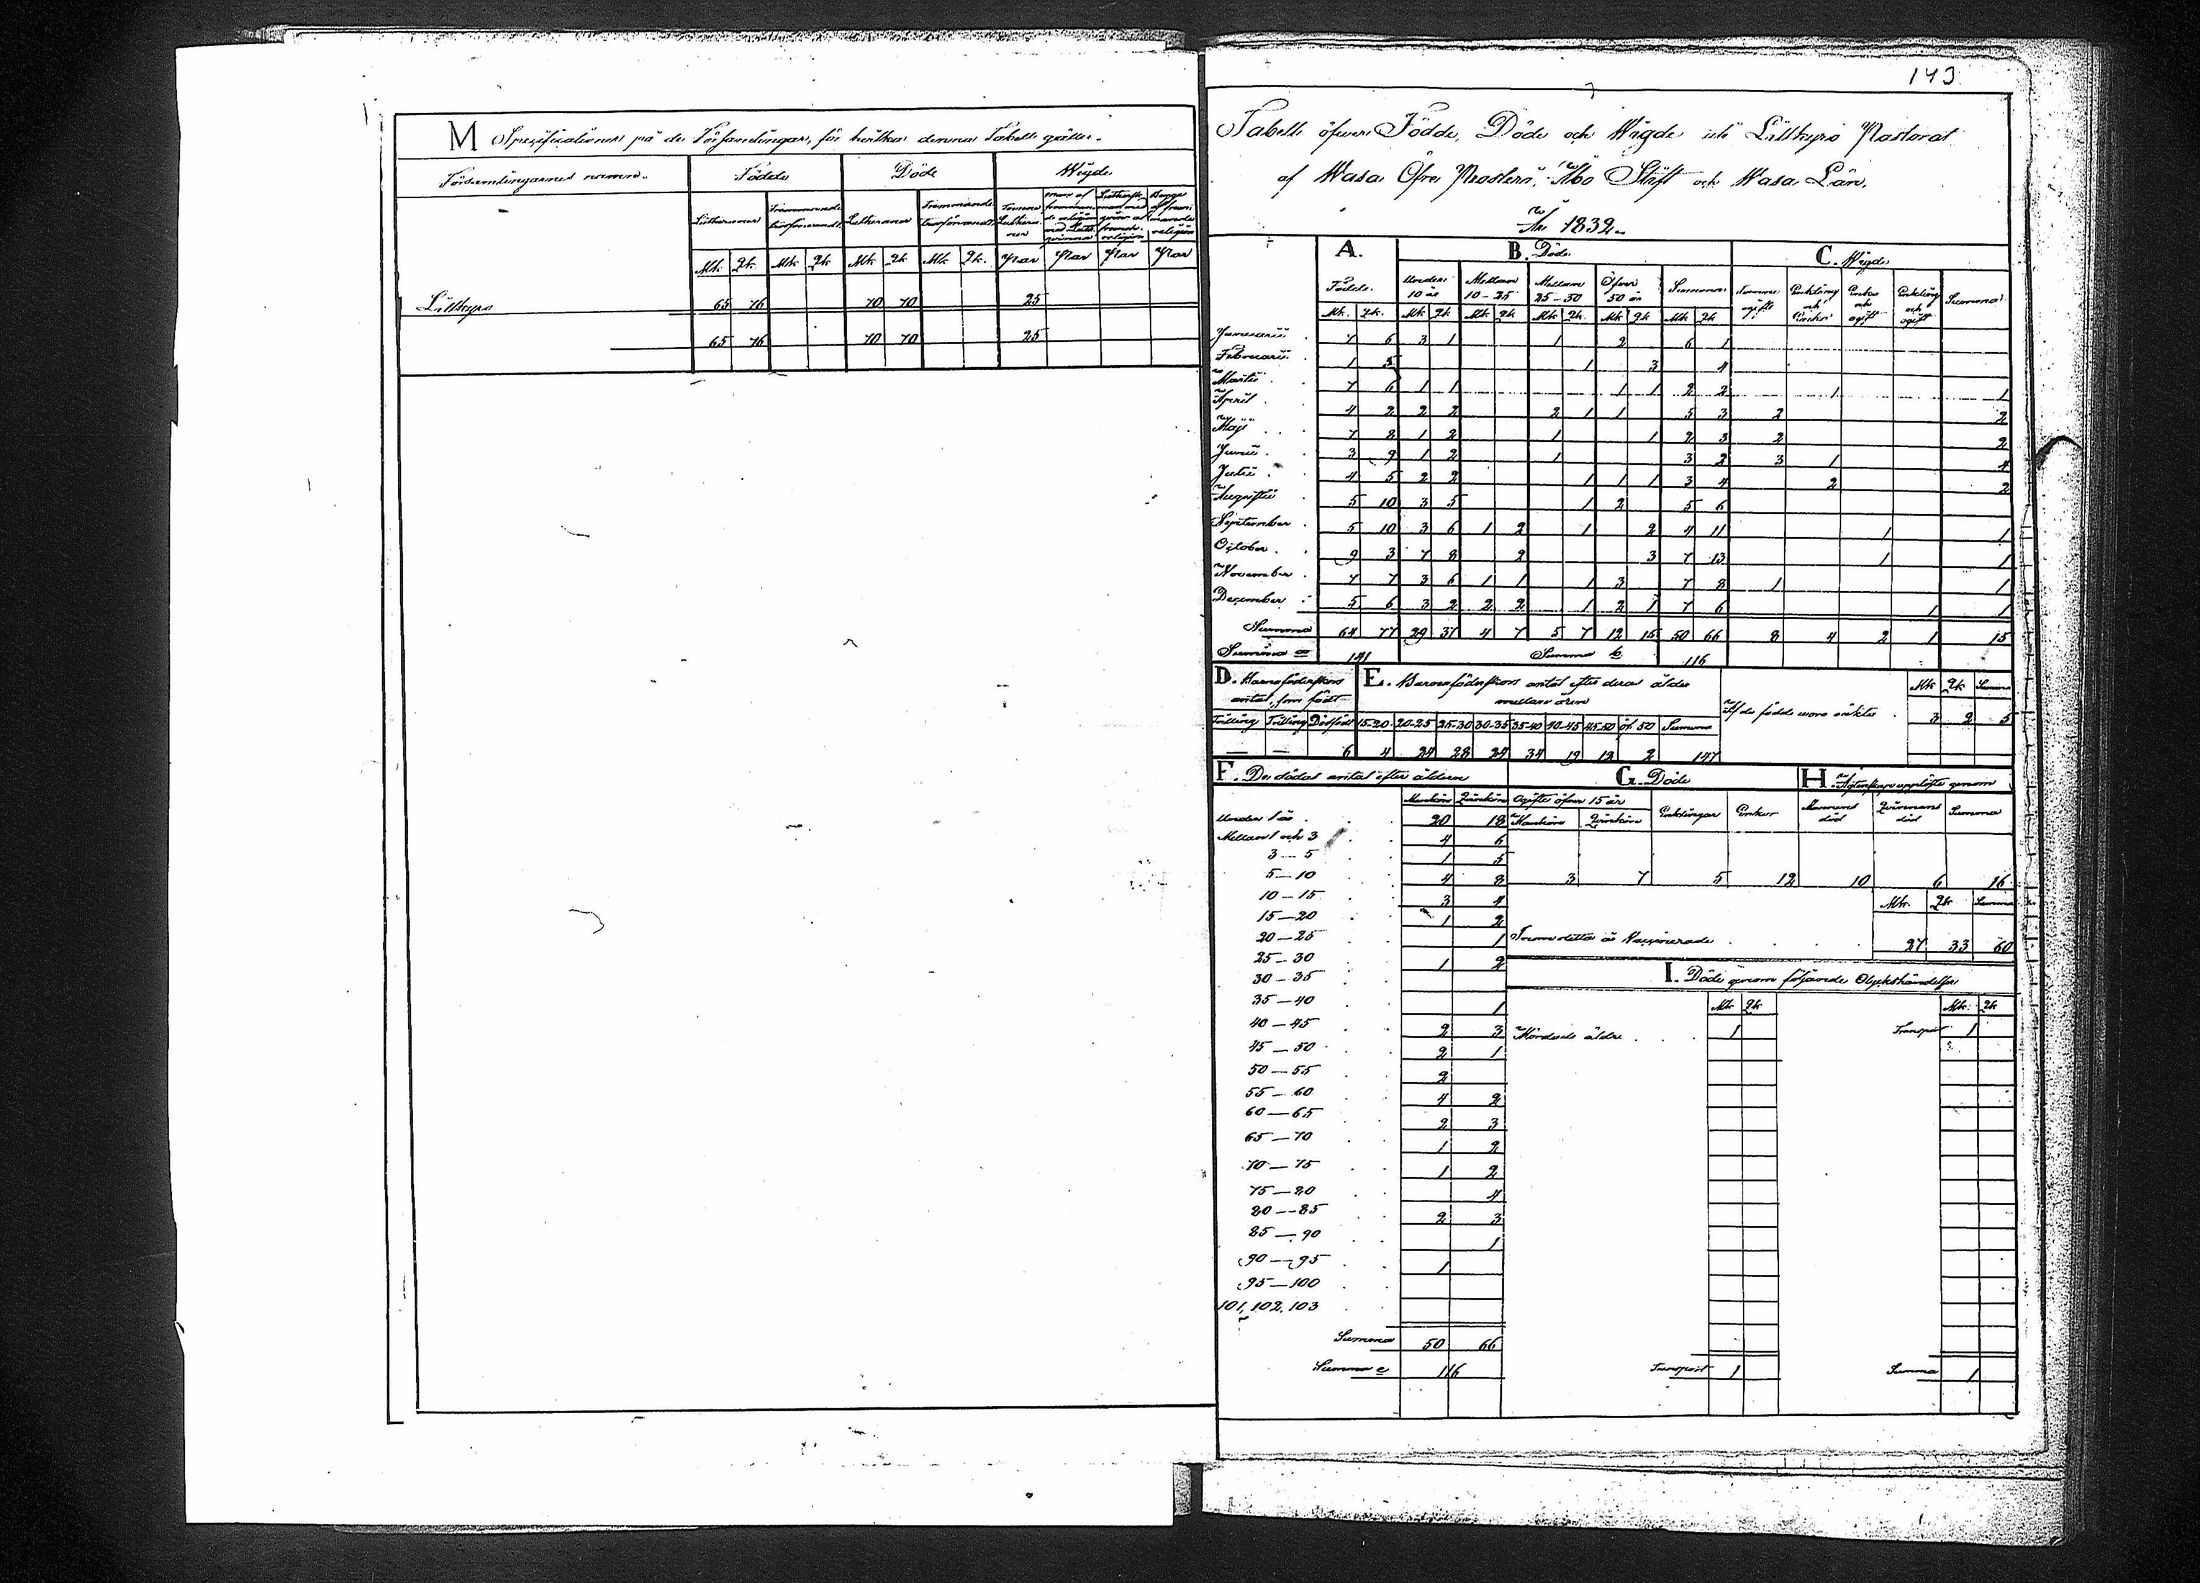 M Specifikationer på de Församlingar, för hvilka denna Tabell gäller.
Församlingarnes namn. Födde Döde Wigde
Lutheraner Främmande Lutheraner Främmande
Mk Qk Mk Qk Mk Qk Mk Qk. Par Par Par Par
Lillkyro 65 76 70 70 25
65 76 70 70 25
143
Tabell öfver Födde, Döde och Wigde uti Lillkyro Pastorat
af Wasa Öfre Prosteri, Åbo Stift och Wasa Län,
År 1832.
A. B. Döde C. Wigde
Födde. Under 10 år Mellan 10-25 Mellan 25-50 Öfver 50 år Summa Summa
Mk. Qk. Mk Qk Mk Qk Mk Qk. Mk Qk Mk Qk
Januarii 7 6 3 1 1 2 6 1
Februarii 1 5 1 3 4
Martii 7 6 1 1 1 1 2 2 1 1
April 4 2 2 2 2 1 1 5 3 2 2
Maji 7 8 1 2 1 1 2 3 2 2
Junii 3 9 1 2 1 3 2 3 1 4
Julii 4 5 2 2 1 1 1 3 4 2 2
Augusti 5 10 3 5 1 2 5 6
September 5 10 3 6 1 2 1 2 4 11 1 1
October 9 3 7 8 2 3 7 13 1 1
November 7 7 3 6 1 1 1 3 7 8 1 1
December 5 6 3 2 2 2 1 2 1 7 6 1 1
Summa 64 77 29 37 4 7 5 7 12 15 50 66 8 4 2 1 15
Summa a 141 Summa b 116
D. Barnaföderskors antal, som födt
E. Barnaföderskors antal efter deras ålder mellan åren
Tvilling Trilling Dödfödt 15-20 20-25 25-30 30-35 35-40 40-45 45-50 öf. 50 Summa
— — 6 4 24 28 24 34 19 12 2 147
Af de födde woro oäkta Mk Qk Summa
3 2 5
F. De dödas antal efter åldern G. Döde H. Äktenskap upplöste genom
Mankön Qvinkön Ogifte öfver 15 år Enklingar Enkor Mannens död Qvinnans död Summa
Mankön Qvinkön
Under 1 år 20 18
Mellan 1 och 3 4 6
3—5 1 5
5—10 4 8 3 7 5 12 10 6 16
10—15 3 4
15—20 1 2
20—25 1
25—30 1 2
30—35
35—40 1
40—45 2 3
45—50 2 1
50—55 2
55—60 4 2
60—65 2 3
65—70 1 2
70—75 1 2
75—80 4
80—85 2 3
85—90 1
90—95 1
95—100
101, 102, 103
Summa 50 66
Summa c 116
Mk. Qk Summa
Inom detta år Vaccinerade 27 33 60
I. Döde genom följande Olyckshändelser
Mk Qk Mk. Qk
Mördade äldre 1 Transport 1
Transport 1 Summa 1